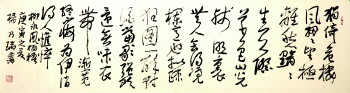 独倚危楼
风细细望极
离愁黯黯
生天际
草色山光
残照里
无人会得凭
栏意也拟疏
狂图一醉
对酒当歌
强饮还无味
衣带渐宽
终不悔为伊消
得人憔悴
柳永凤栖梧
庚寅之